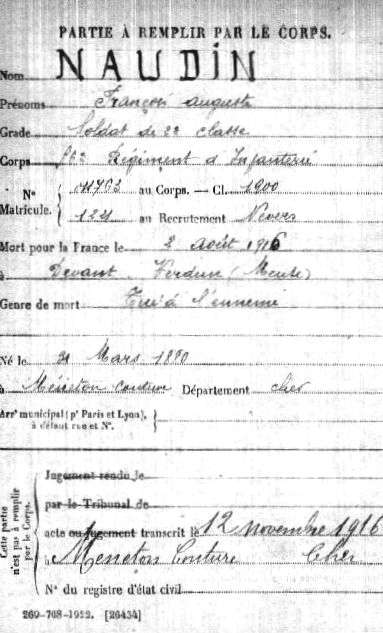 PARTIE À REMPLIR PAR LE CORPS.
Nom NAUDIN
Prénoms François auguste
Grade Soldat de 2e classe
Corps Régiment d'Infanterie
au Corps. — Cl. 1900
N° Matricule.
121 au Recrutement Nevers
Mort pour la France le 2 août 1916
à Devant Verdun (Meuse)
Genre de mort Tué à l'ennemi
Né le 21 Mars 1880
à Menetou Couture Département Cher
Arrt municipal (pr Paris et Lyon),
à défaut rue et N°.
Cette partie
n'est pas à remplir
par le Corps.
Jugement rendu le
par le Tribunal de
acte ou jugement transcrit le 12 novembre 1916
à Menetou Couture Cher
N° du registre d'état civil
269-708-1922. [26434]